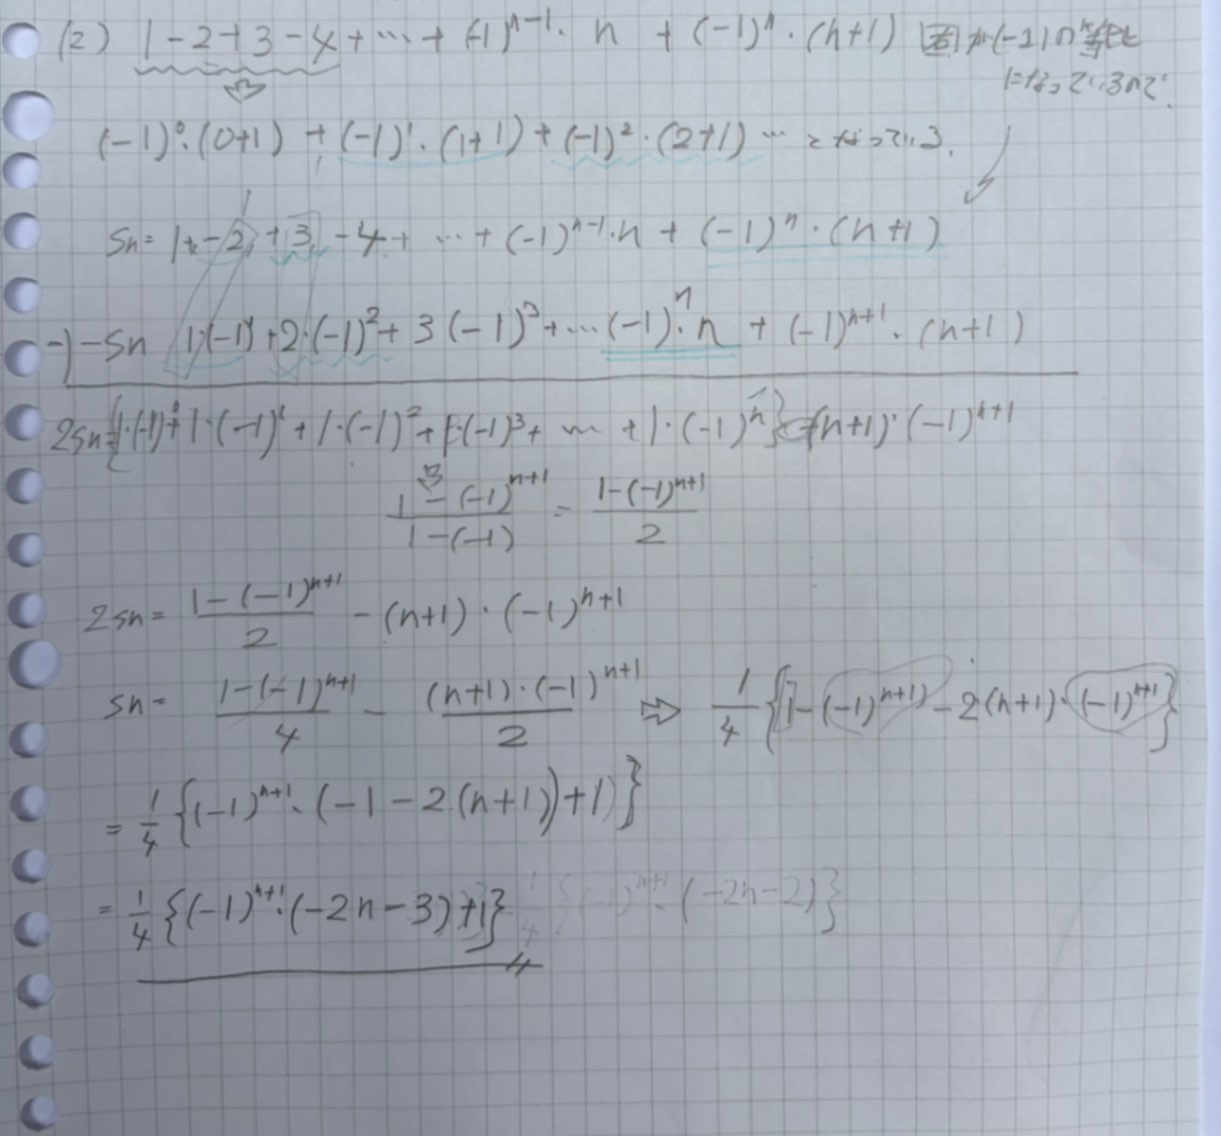 (2) 1-2+3-4+…+(-1)^{n-1}・n+(-1)^n・(n+1) 因が(-1)の
になっているので、
(-1)^0・(0+1)+(-1)^1・(1+1)+(-1)^2・(2+1)… となっている。
Sn=1+-2+3-4+…+(-1)^{n-1}・n+(-1)^n・(n+1)
-)-Sn 1・(-1)^1+2・(-1)^2+3(-1)^3+…(-1)^n・n+(-1)^{n+1}・(n+1)
2Sn={1・(-1)^0+1・(-1)^1+1・(-1)^2+1・(-1)^3+…+1・(-1)^n}-(n+1)・(-1)^{n+1}
\frac{1-(-1)^{n+1}}{1-(-1)}=\frac{1-(-1)^{n+1}}{2}
2Sn=\frac{1-(-1)^{n+1}}{2}-(n+1)・(-1)^{n+1}
Sn=\frac{1-(-1)^{n+1}}{4}-\frac{(n+1)・(-1)^{n+1}}{2}⇒\frac{1}{4}{1-(-1)^{n+1}-2(n+1)・(-1)^{n+1}}
=\frac{1}{4}{(-1)^{n+1}・(-1-2(n+1))+1)}
=\frac{1}{4}{(-1)^{n+1}・(-2n-3)+1} \frac{1}{4}{(-1)^{n+1}・(-2n-2)}